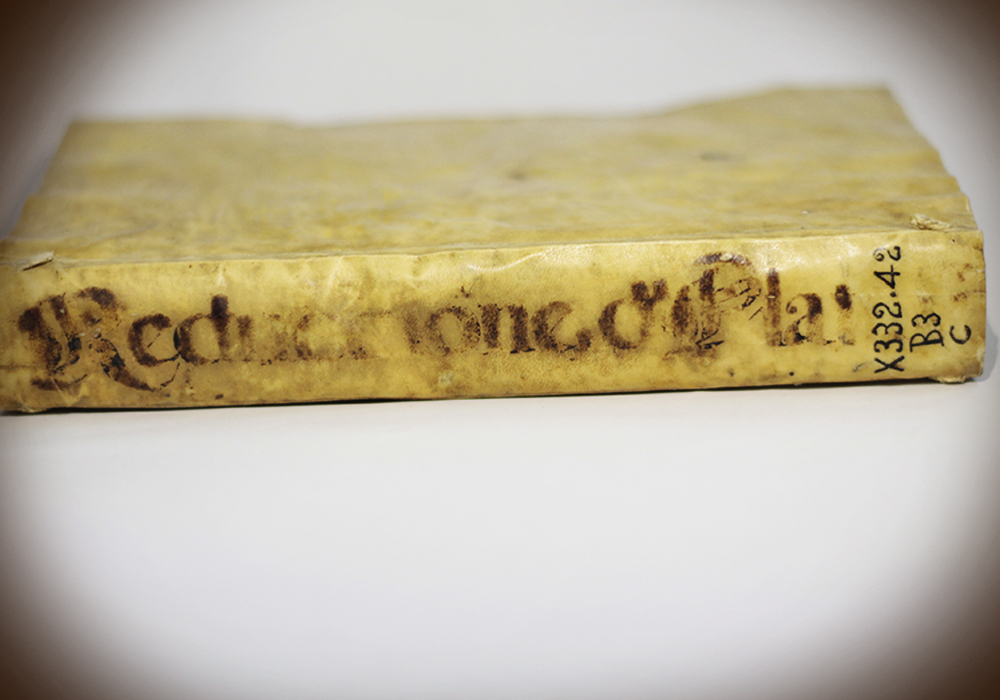 Reduciones d Pla:
X332.42
B3
C